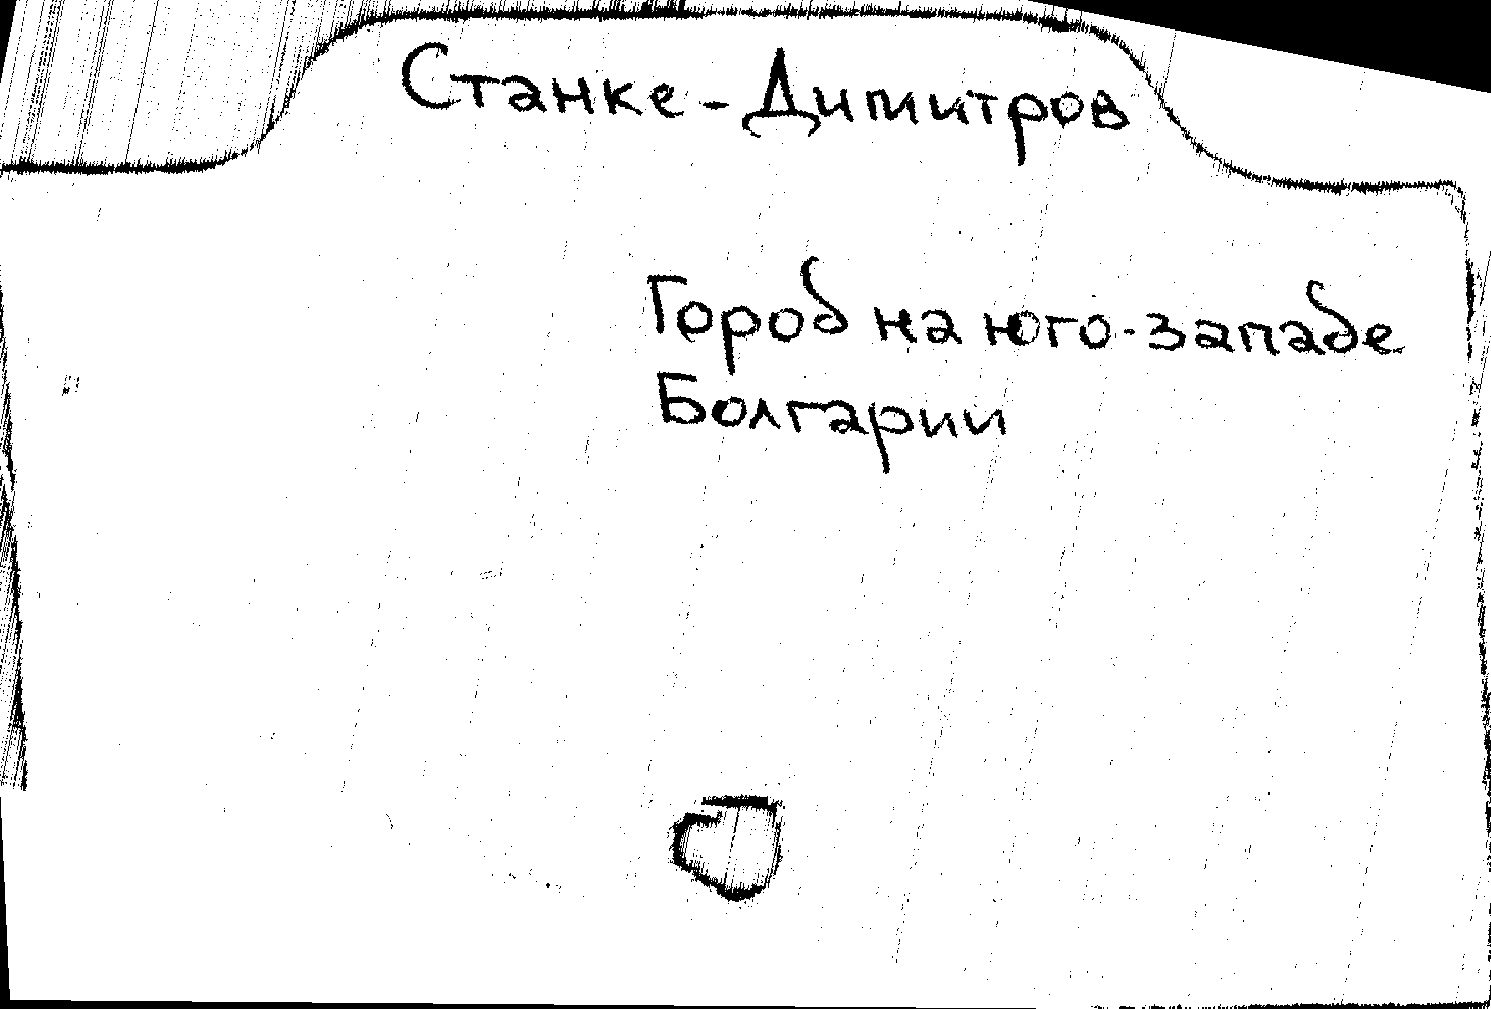 Станке-Димитров
Город на юго-западе
Болгарии